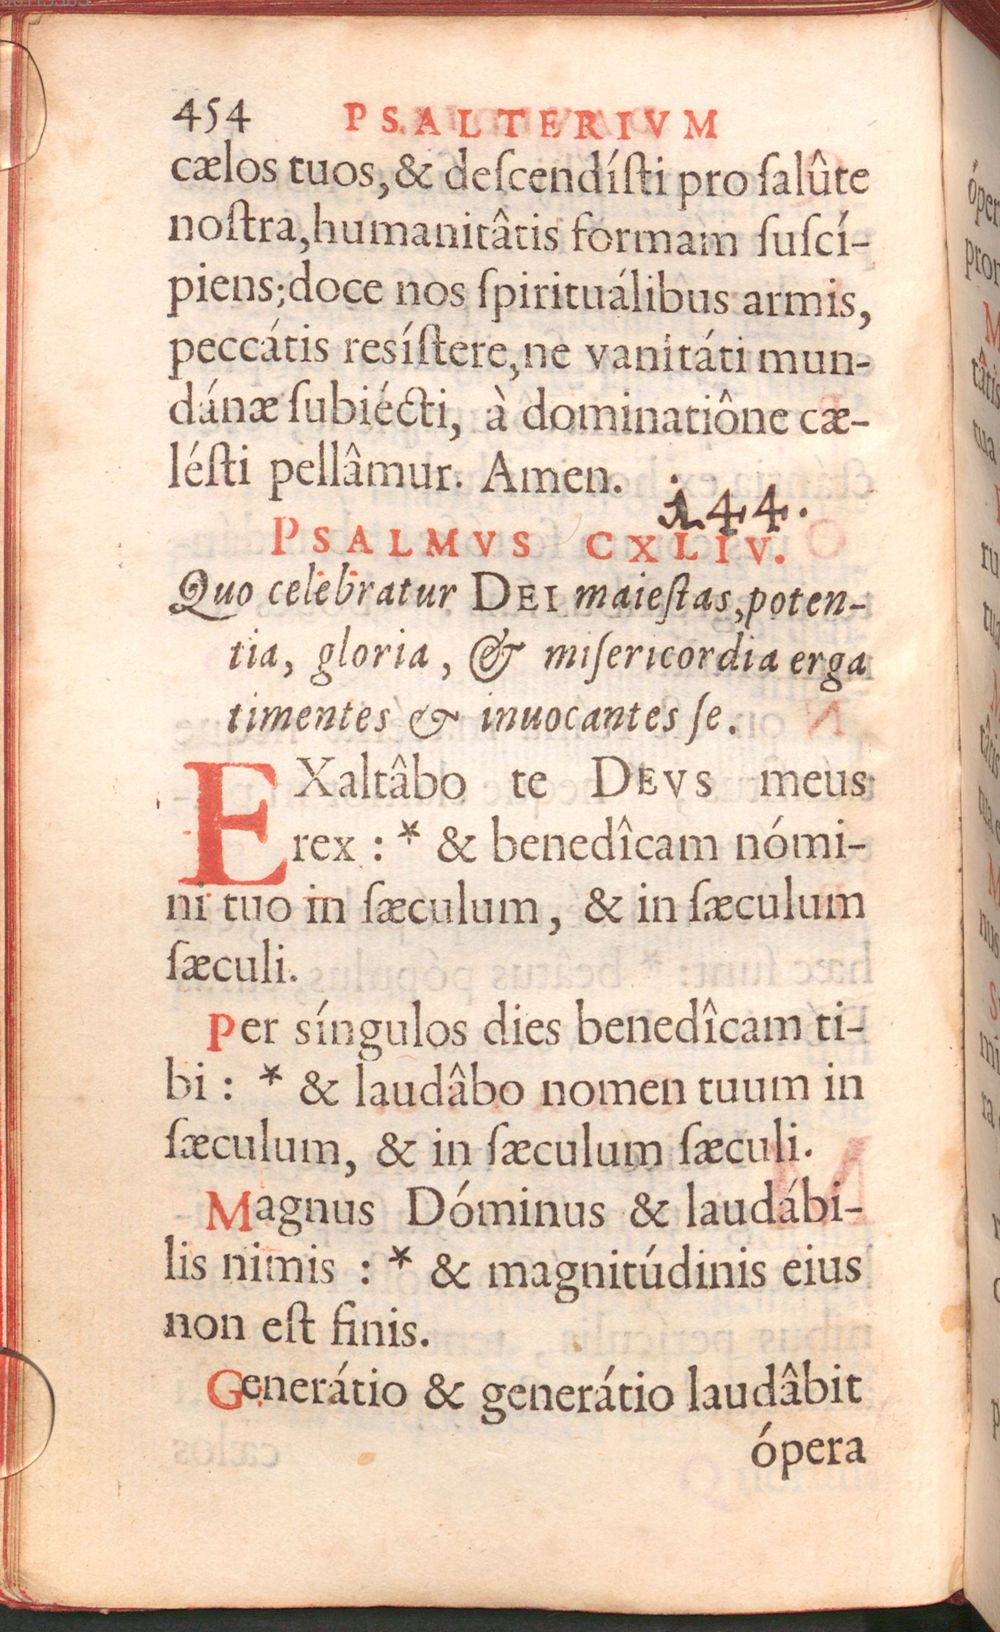 454 PSALTERIVM
cælos tuos, & deſcendíſti pro ſalûte
noſtra, humanitâtis formam ſuſcí-
piens; doce nos ſpirituálibus armis,
peccátis resíſtere, ne vanitáti mun-
dánæ ſubiécti, à dominatiône cæ-
léſti pellâmur. Amen.
144.
PSALMVS CXLIV.
Quo celebratur DEI maieſtas, poten-
tia, gloria, & miſericordia erga
timentes & inuocantes ſe.
EXaltâbo te DEVS meus
rex : * & benedîcam nómi-
ni tuo in ſæculum, & in ſæculum
ſæculi.
Per síngulos dies benedîcam ti-
bi : * & laudâbo nomen tuum in
ſæculum, & in ſæculum ſæculi.
Magnus Dóminus & laudábi-
lis nimis : * & magnitúdinis eius
non eſt finis.
Generátio & generátio laudâbit
ópera